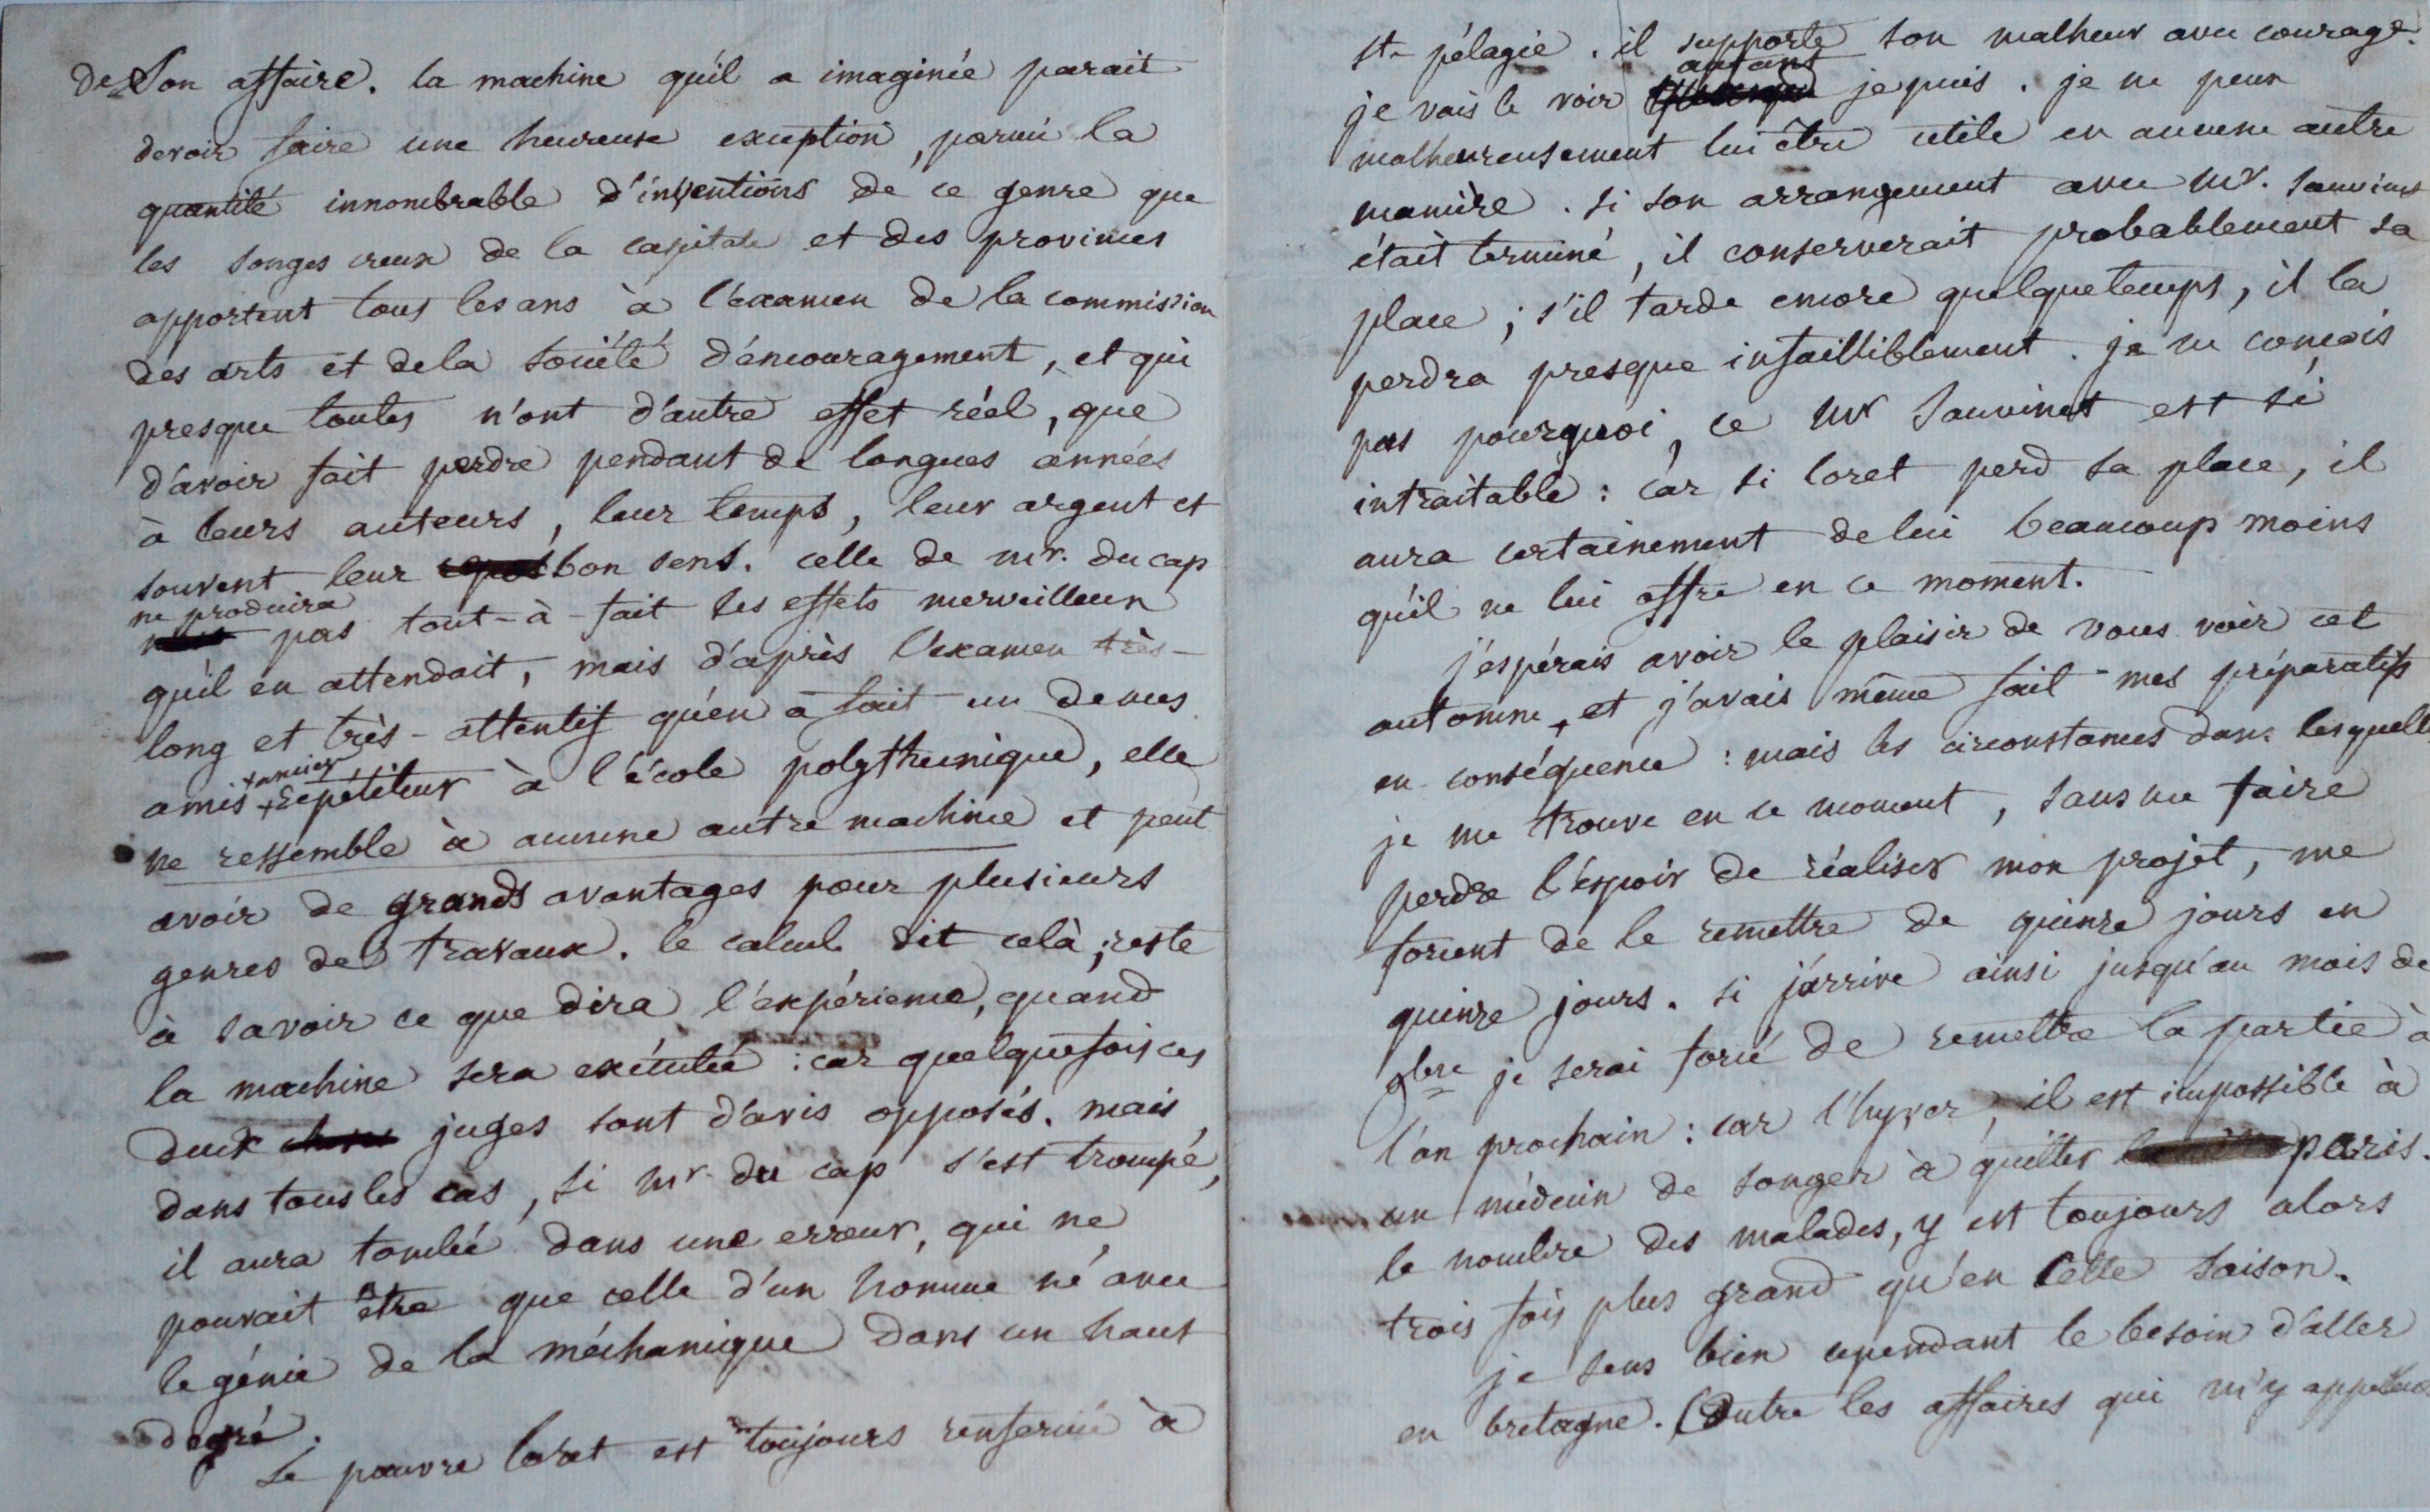 de son affaire. la machine qu'il a imaginée parait
devoir faire une heureuse exception, parmi la
quantité innombrable d'inventions de ce genre que
les songes creux de la capitale et des provinces
apportent tous les ans à l'examen de la commission
des arts et de la société d'encouragement, et qui
presque toutes n'ont d'autre effet réel, que
d'avoir fait perdre pendant de longues années
à leurs auteurs, leur temps, leur argent et
souvent leur bon sens. celle de mr. du cap
ne produira
pas tout-à-fait les effets merveilleux
qu'il en attendait, mais d'après l'examen très-
long et très-attentif qu'en a fait un de mes
+ ancien
amis + répétiteur à l'école polythecnique, elle
ne ressemble à aucune autre machine et peut
avoir de grands avantages pour plusieurs
genres de travaux. le calcul dit celà; reste
à savoir ce que dira l'expérience, quand
la machine sera exécutée : car quelquefois ces
deux juges sont d'avis opposés. mais
dans tous les cas, si mr. du cap s'est trompé,
il aura tombé dans une erreur, qui ne
pouvait être que celle d'un homme né avec
le génie de la méchanique dans un haut
degré.
Le pauvre loret est toujours renfermé à
st-pélagie. il supporte son malheur avec courage.
autant
je vais le voir je puis. je ne peux
malheureusement lui être utile en aucune autre
manière. si son arrangement avec mr. Sauvinet
était terminé, il conserverait probablement sa
place; s'il tarde encore quelque temps, il la
perdra presque infailliblement. je ne conçois
pas pourquoi, ce mr Sauvinet est si
intraitable : car si loret perd sa place, il
aura certainement de lui beaucoup moins
qu'il ne lui offre en ce moment.
j'espérais avoir le plaisir de vous voir cet
automne, et j'avais même fait mes préparatifs
en conséquence : mais les circonstances dans lesquelles
je me trouve en ce moment, sans me faire
perdre l'espoir de réaliser mon projet, me
forcent de le remettre de quinze jours en
quinze jours. si j'arrive ainsi jusqu'au mois de
9bre je serai forcé de remettre la partie à
l'an prochain : car l'hyver, il est impossible à
un médecin de songer à quitter paris.
le nombre des malades, y est toujours alors
trois fois plus grand qu'en cette saison.
je sens bien cependant le besoin d'aller
en bretagne. Outre les affaires qui m'y appellent